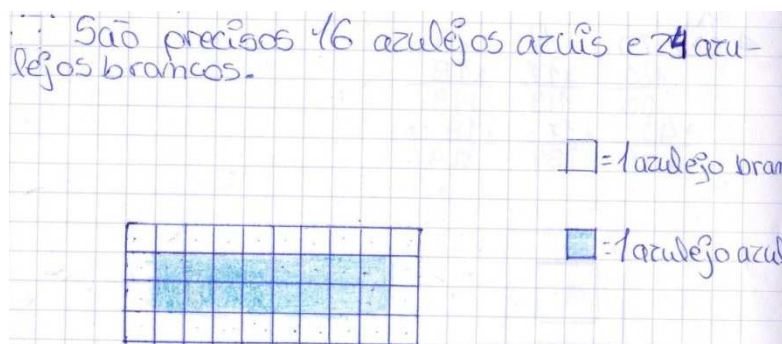 ∴ São precisos 16 azulejos azuis e 24 azu-
lejos brancos.
= 1 azulejo bran
= 1 azulejo azul